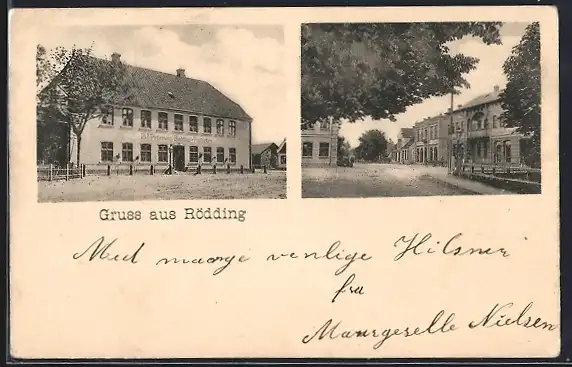 Gruss aus Rödding
Med mange venlige Hilsner
fra
Maurgeselle Nielsen